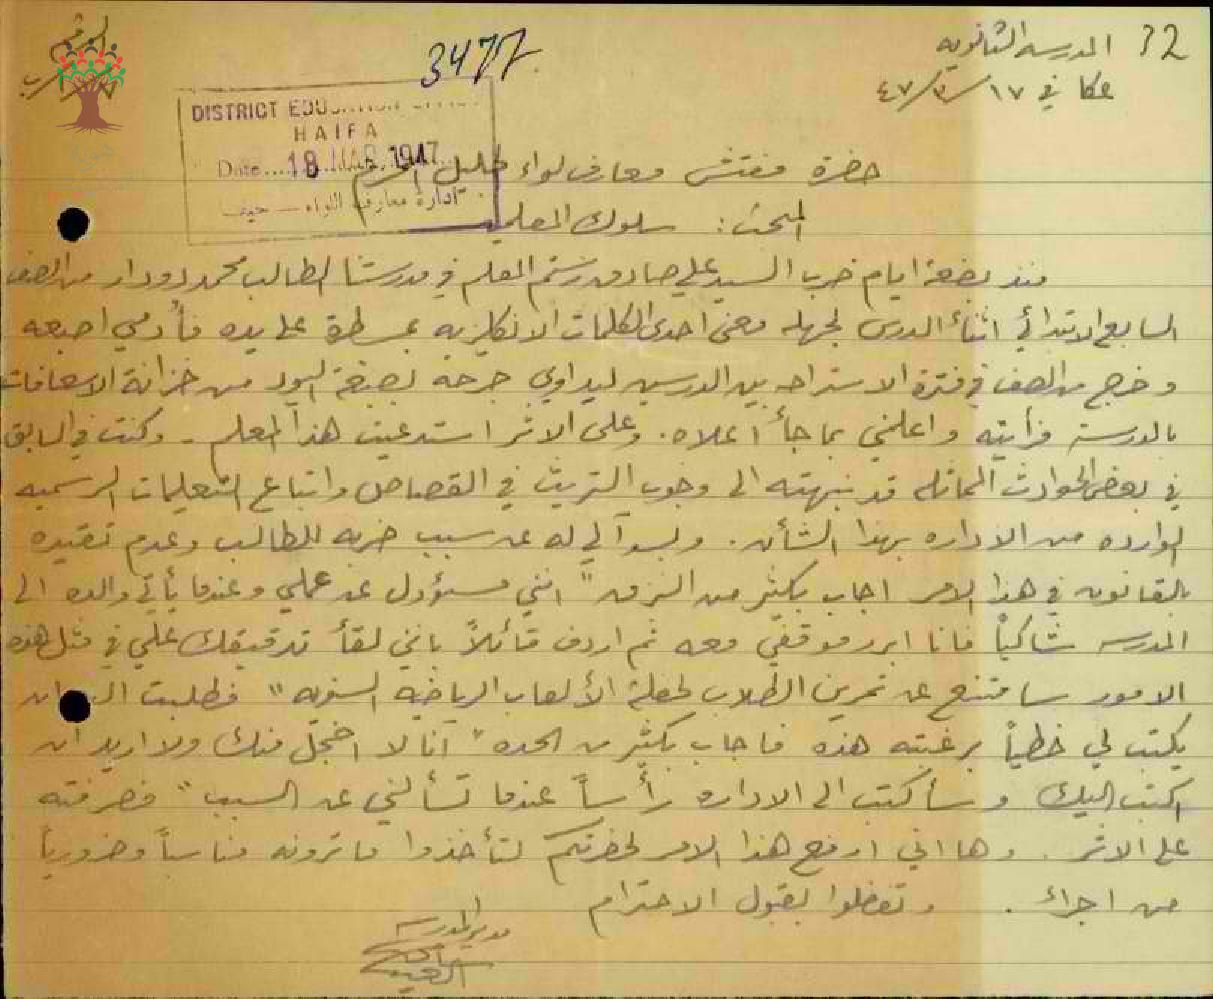 32
المدرسة الثانوية
عكا في ١٧/٣/٤٧
3477
DISTRICT EDUCATION OFFICE
HAIFA
Date.... 18 MAR 1947
ادارة معارف اللواء — حيفا
حضرة مفتش معارف لواء الجليل المحترم
المبحث : سلوك المعلمين
منذ بضعة ايام ضرب السيد علي صادق رستم المعلم في مدرستنا الطالب محمد دودار من الصف
السابع الابتدائي اثناء الدرس لجهله معنى احدى الكلمات الانكليزيه بمسطرة على يده فأُدمي اصبعه
وخرج من الصف في فترة الاستراحه بين الدرسين ليداوي جرحه بصبغة اليود من خزانة الاسعافات
بالمدرسة فرأيته واعلمني بما جأ أعلاه. وعلى الاثر استدعيت هذا المعلم - وكنت في السابق
في بعض الحوادث المماثله قد نبهته الى وجوب التريث في القصاص واتباع التعليمات الرسميه
الوارده من الاداره بهذا الشأن. وبسوآلي له عن سبب ضربه للطالب وعدم تقيده
بالقانون في هذا الامر اجاب بكثير من النزق " انني مسؤول عن عملي وعندما يأتي والده الى
المدرسه شاكياً فانا ابرر موقفي معه ثم اردف قائلاً بانني لقأ تدقيقك علي في مثل هذه
الامور سامتنع عن تمرين الطلاب لحفلة الألعاب الرياضيه السنويه " فطلبت اليه ان
يكتب لي خطياً برغبته هذه فاجاب بكثير من الحده " أنا لا اخجل منك ولا اريد ان
اكتب اليك وسأكتب الى الاداره رأساً عندما تسألني عن السبب " فصرفته
على الاثر. وها اني ارفع هذا الامر لحضرتكم لتأخذوا ما ترونه مناسباً وضرورياً
من اجراء. وتفضلوا بقبول الاحترام
مدير المدرسه